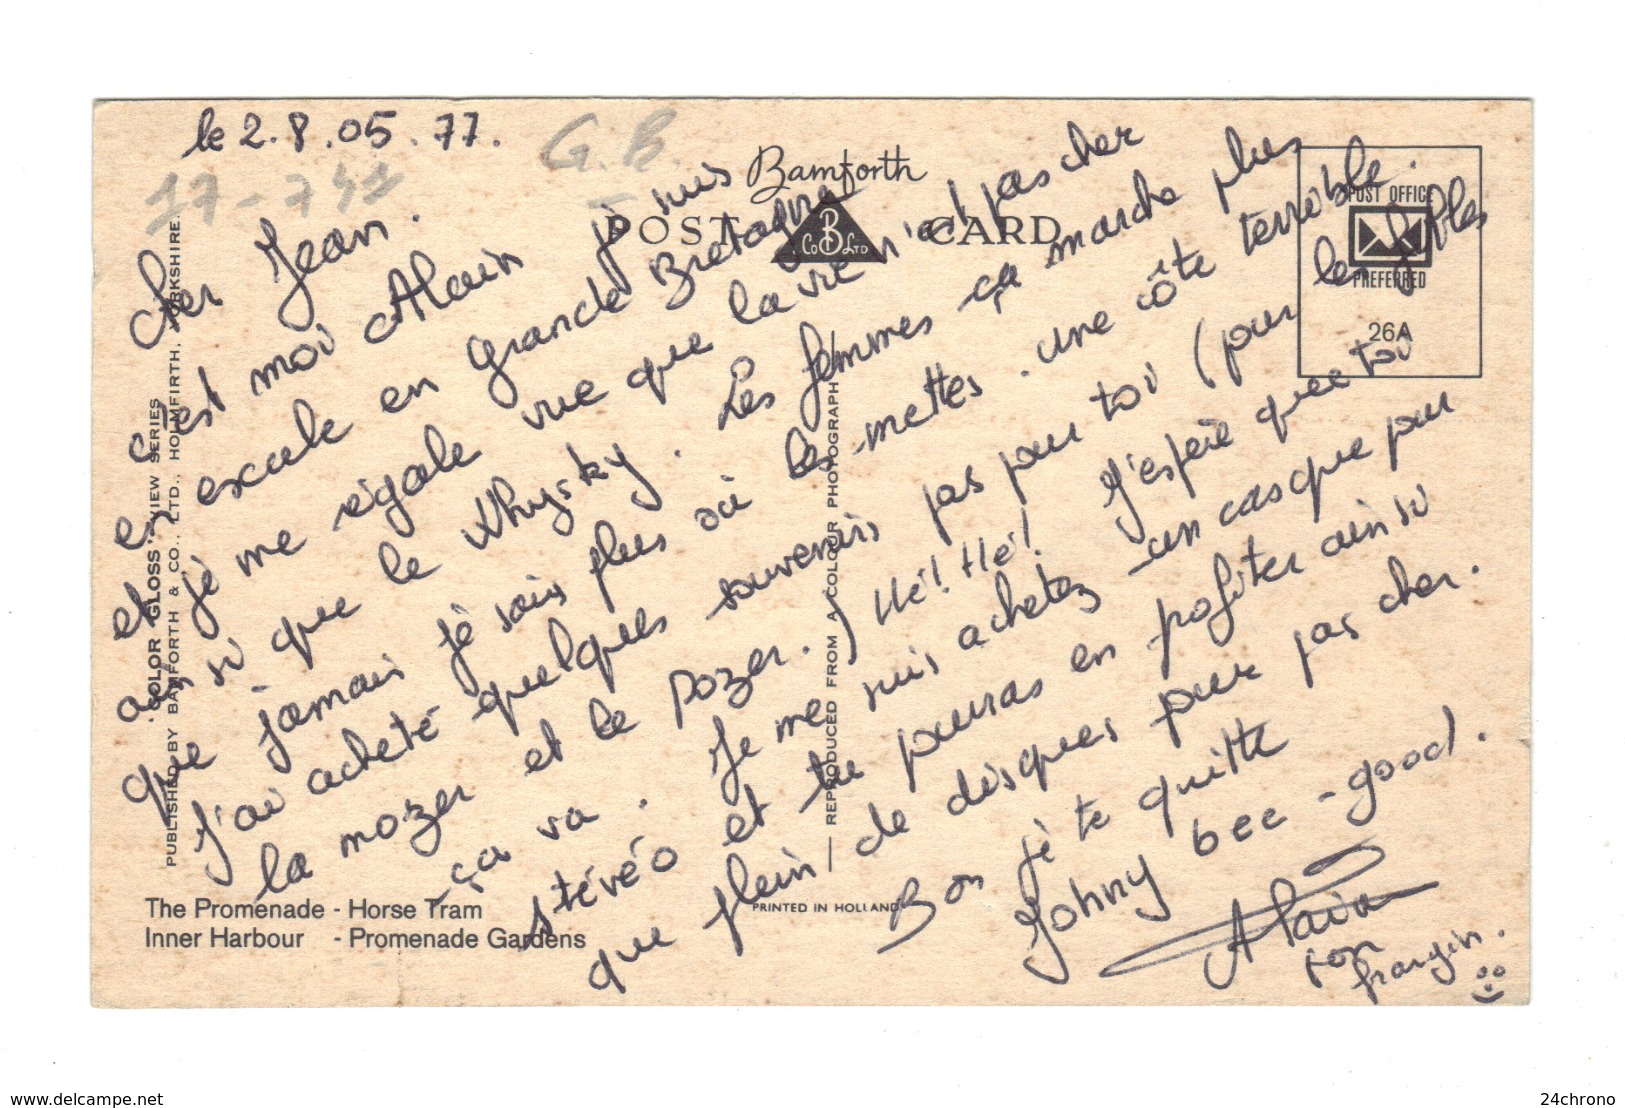 le 2.8.05.77.
G.B.
17-741
Bamforth
POST CARD
B
Co LTD
POST OFFICE
PREFERRED
26A
Cher Jean.
c'est moi Alain je suis
en escale en grande Bretagne
et je me régale vue que la vie n'est pas cher
ainsi que le Whysky. Les femmes ça marche plus
que jamais je sais plus où les mettes. une côte terrible.
J'ai acheté quelques souvenirs pas pour toi (pour les filles
la mozer et le pozer.) Hé! Hé! J'espère que toi
ça va. Je me suis achetez un casque pour
stéréo et tu pouras en profiter ainsi
que plein de disques pour pas cher.
Bon je te quitte
Johny bee-good.
Alain
ton
frangin.
"COLOR GLOSS" VIEW SERIES
PUBLISHED BY BAMFORTH & CO., LTD., HOLMFIRTH, YORKSHIRE.
REPRODUCED FROM A COLOUR PHOTOGRAPH
PRINTED IN HOLLAND
The Promenade - Horse Tram
Inner Harbour - Promenade Gardens
www.delcampe.net
24chrono